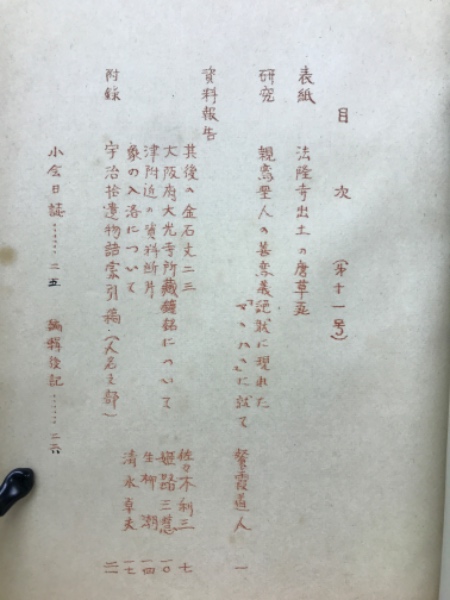 目次 (第十一号)
表紙 法隆寺出土の唐草瓦
研究 親鸞聖人の善悪義絶状に現れた
「まゝはゝ」に就て 紫霞道人 一
資料報告
其後の金石文二三 佐々木利三 七
大阪府大光寺所蔵鐘銘について 姫路三慧 一〇
津附近の資料断片 生柳潮 一四
象の入洛について 清水卓夫 一七
附録 宇治拾遺物語索引稿(人名之部) 二一
小会日誌……二五 編輯後記……二六